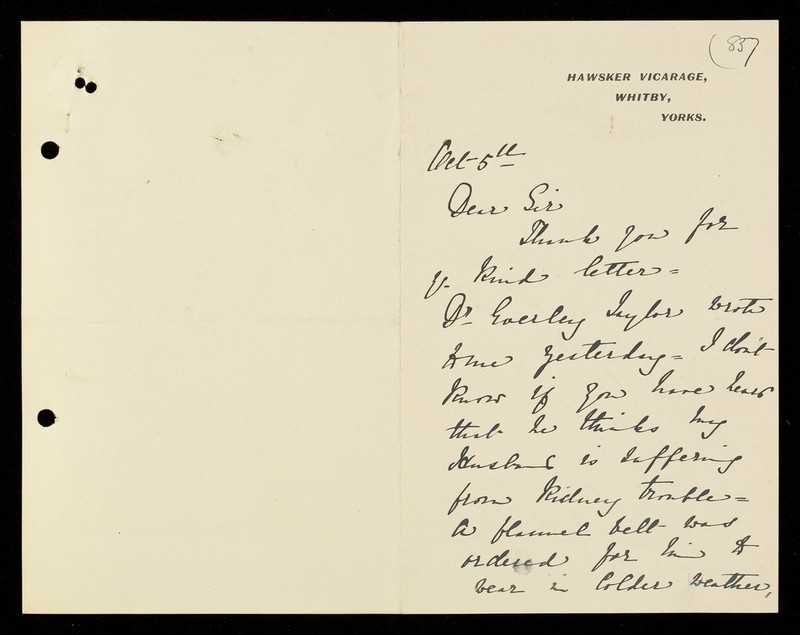 (85)
HAWSKER VICARAGE,
WHITBY,
YORKS.
Oct 5th
Dear Sir
Thank you for
yr kind letter =
Dr Everley Taylor wrote
to me yesterday = I don't
know if you have heard
that he thinks my
Husband is suffering
from Kidney trouble =
A flannel belt was
ordered for him to
wear in Colder weather,